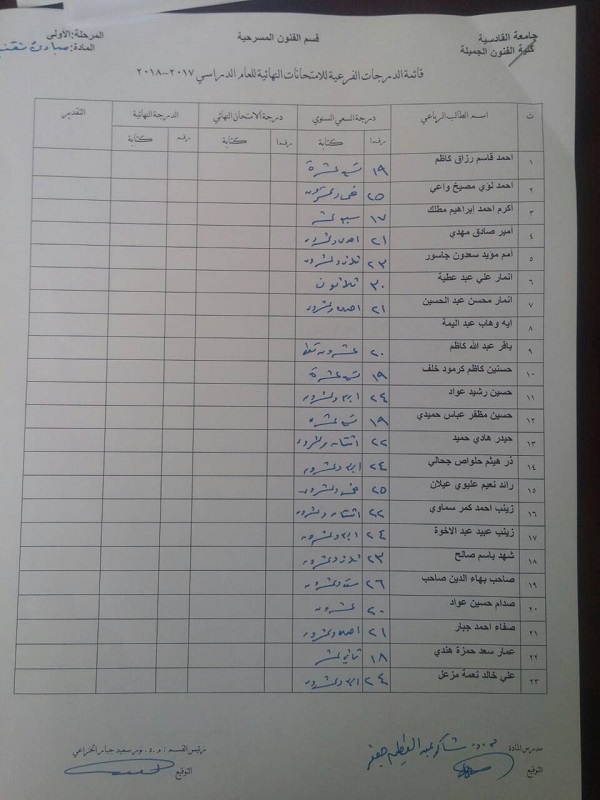 جامعة القادسية
كلية الفنون الجميلة
قسم الفنون المسرحية
المرحلة:الأولى
المادة: مبادئ
قائمة الدرجات الفرعية للامتحانات النهائية للعام الدراسي ٢٠١٧-٢٠١٨
ت اسم الطالب الرباعي درجة السعي السنوي درجة الامتحان النهائي الدرجة النهائية التقدير
رقما كتابة رقما كتابة رقما كتابة
١ احمد قاسم رزاق كاظم ١٩ تسعة عشرة
٢ احمد لؤي مصيخ واعي ٢٥ خمس وعشرون
٣ أكرم احمد إبراهيم مطلك ١٧ سبع عشر
٤ أمير صادق مهدي ٢١ احدى وعشرون
٥ امم مؤيد سعدون جاسور ٢٣ ثلاث وعشرون
٦ انمار علي عبد عطية ٣٠ ثلاثون
٧ انمار محسن عبد الحسين ٢١ احدى وعشرون
٨ ايه وهاب عبد اليمة
٩ باقر عبد الله كاظم ٢٠ عشرون فقط
١٠ حسنين كاظم كرمود خلف ١٩ تسعة عشرة
١١ حسين رشيد عواد ٢٤ اربع وعشرون
١٢ حسين مظفر عباس حميدي ١٩ تسعة عشرة
١٣ حيدر هادي حميد ٢٢ اثنتان وعشرون
١٤ ذر هيثم حلواص جحالي ٢٤ اربع وعشرون
١٥ رائد نعيم عليوي عيلان ٢٥ خمس وعشرون
١٦ زينب احمد كمر سماوي ٢٢ اثنتان وعشرون
١٧ زينب عبيد عبد الاخوة ٢٤ اربع وعشرون
١٨ شهد باسم صالح ٢٣ ثلاث وعشرون
١٩ صاحب بهاء الدين صاحب ٢٦ ست وعشرون
٢٠ صدام حسين عواد ٢٠ عشرون
٢١ صفاء احمد جبار ٢١ احدى وعشرون
٢٢ عمار سعد حمزة هندي ١٨ ثماني عشر
٢٣ علي خالد نعمة مزعل ٢٤ اربع وعشرون
مدرس المادة م.د. شاكر عبد العظيم جعفر
التوقيع
رئيس القسم: م.د. نور سعيد جبار الخزاعي
التوقيع